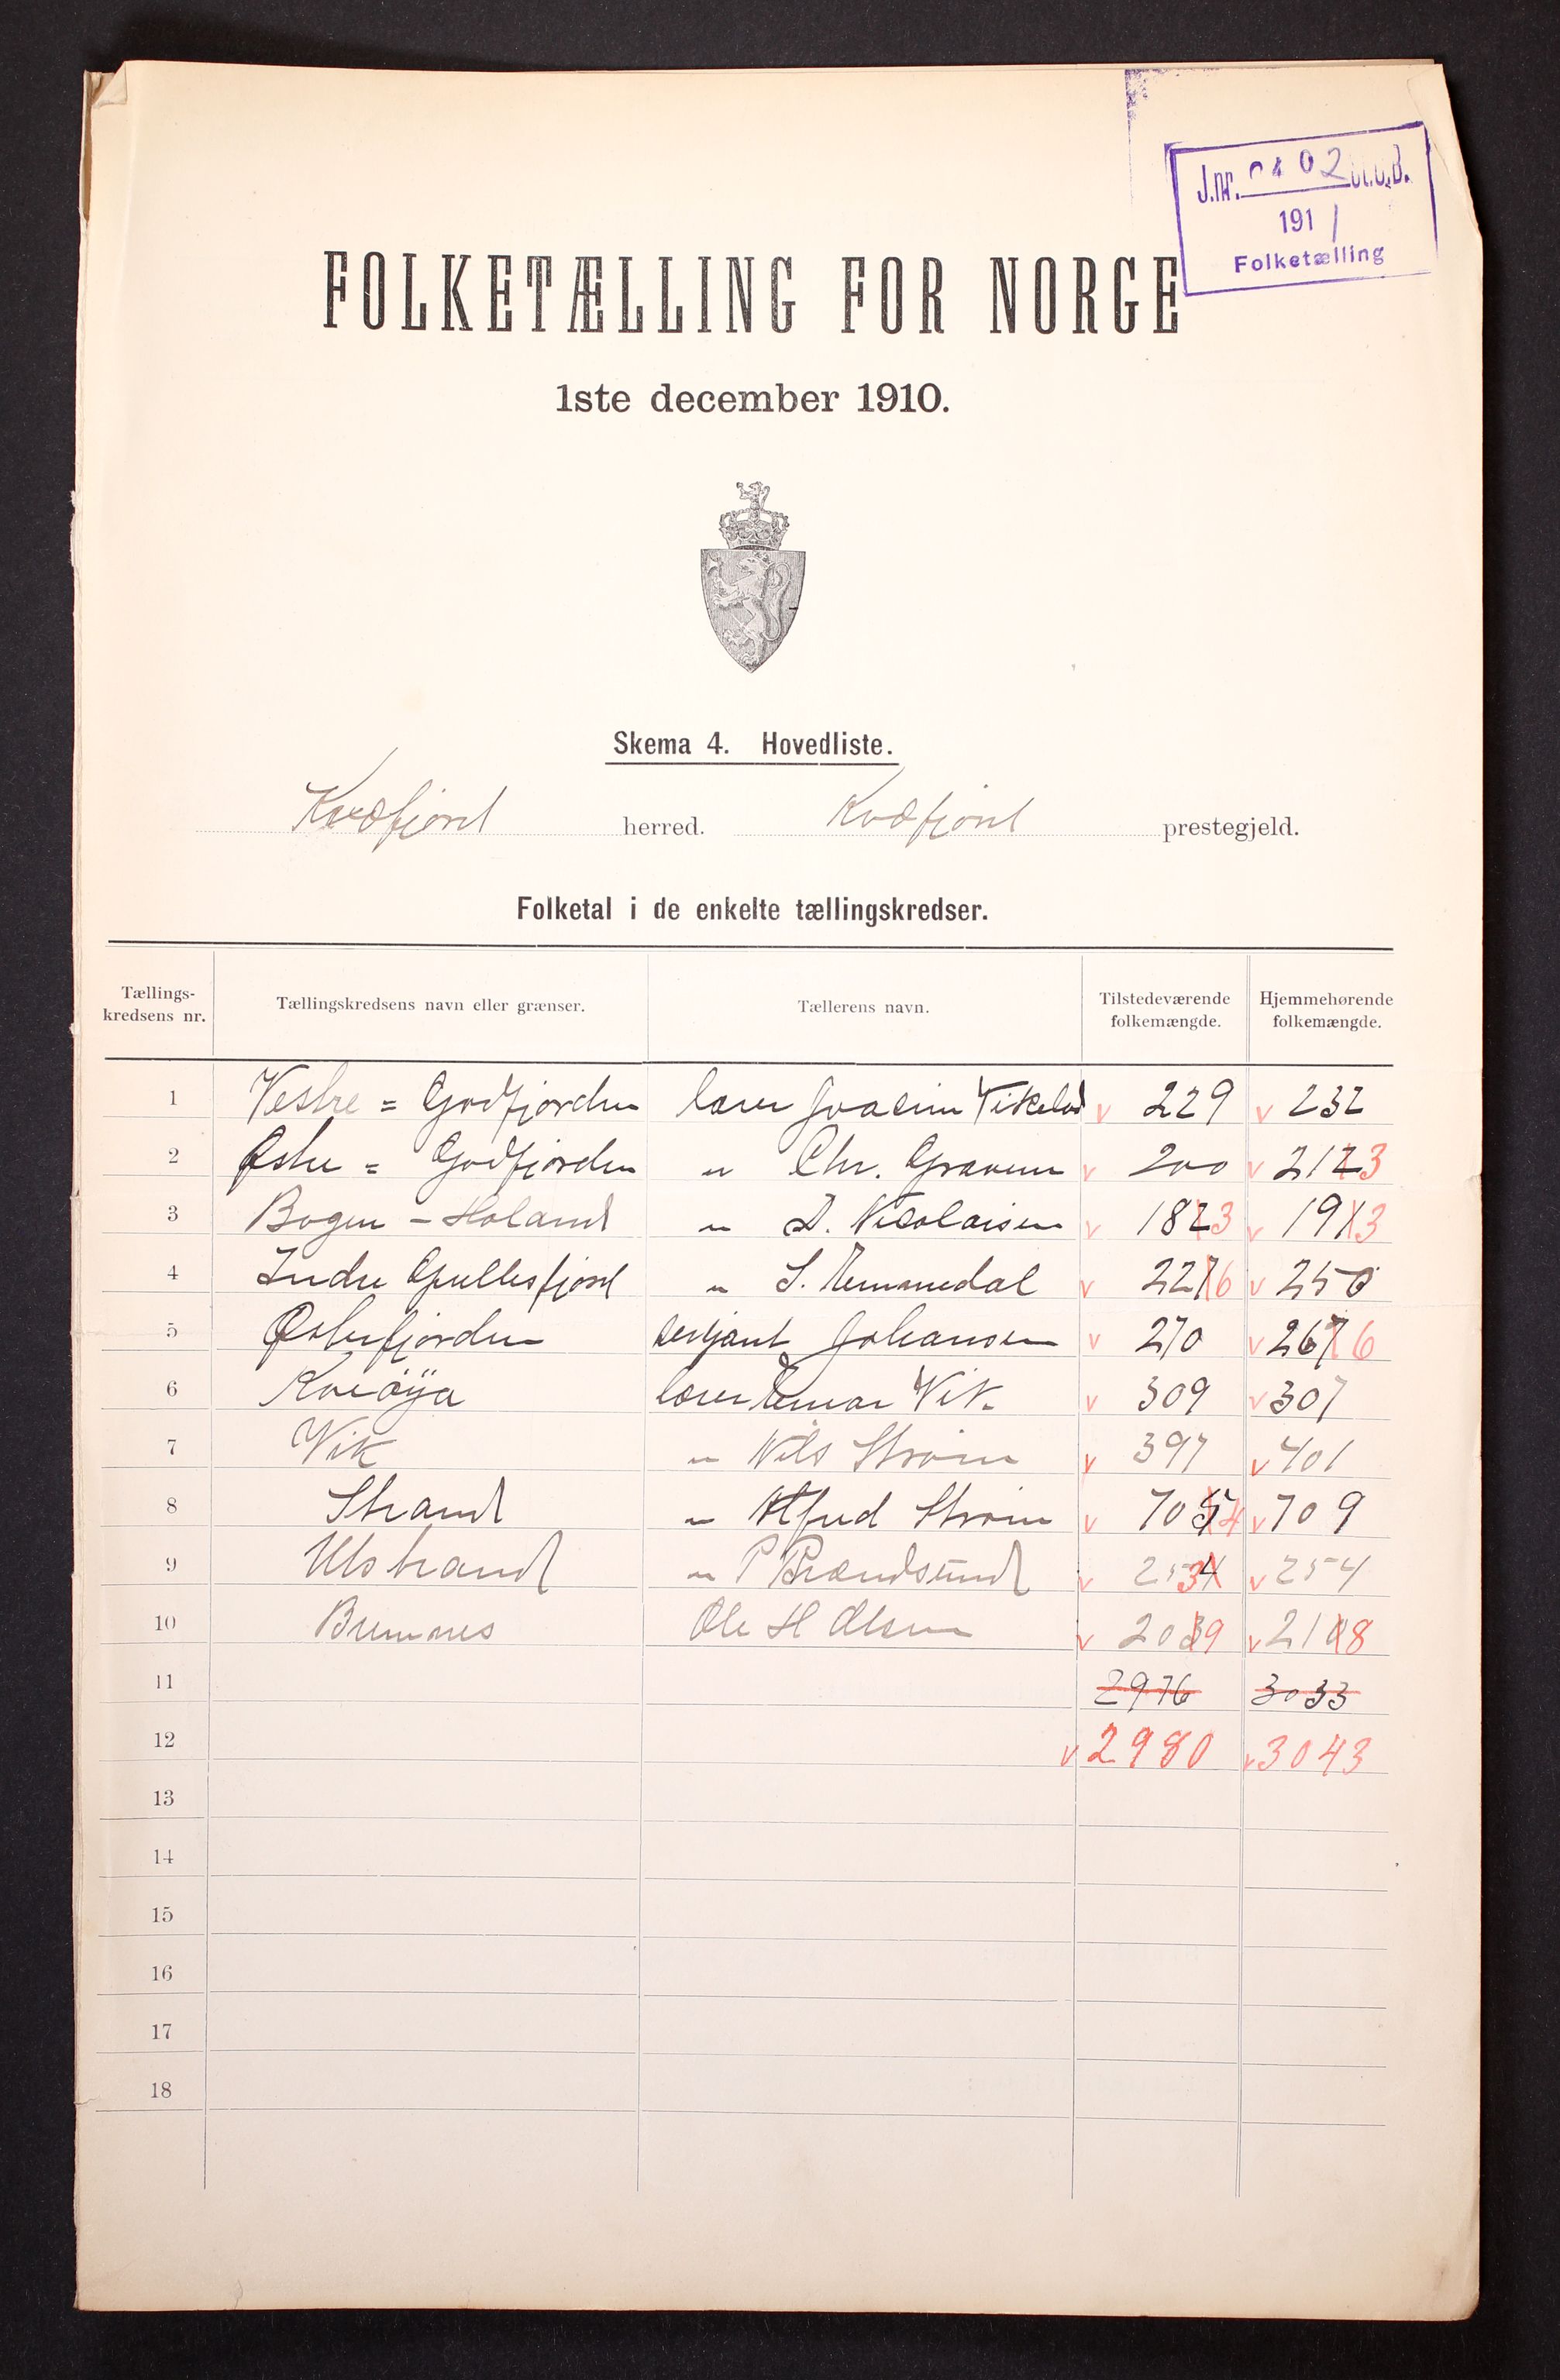 J.nr. 0402 B.
191 1
Folketælling
FOLKETÆLLING FOR NORGE
1ste december 1910.
Skema 4. Hovedliste.
Kvæfjord herred. Kvæfjord prestegjeld.
Folketal i de enkelte tællingskredser.
Tællings-kredsens nr. Tællingskredsens navn eller grænser. Tællerens navn. Tilstedeværende folkemængde. Hjemmehørende folkemængde.
1 Vestre = Godfjorden lærer Joacim v 229 v 232
2 Østre = Godfjorden " Chr. v 200 v 2123
3 Bogen - Holand " D. Nicolaisen v 1823 v 1913
4 Indre Gullesfjord " S. Remmedal v 2276 v 250
5 Østerfjorden serjant Johansen v 270 v 2676
6 Kveøya lærer Vik v 309 v 307
7 Vik " Nils Strøm v 397 v 401
8 Strand " Alfred Strøm v 7054 v 709
9 Utstrand " P v 2534 v 254
10 Bremnes Ole H Olsen v 2039 v 2108
11 2976 3033
12 v 2980 v 3043
13
14
15
16
17
18